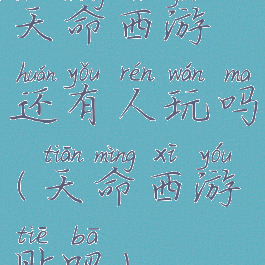 天命西游
huán yǒu rén wán ma
还有人玩吗
tiān mìng xī yóu
(天命西游
tiē bā
贴吧)